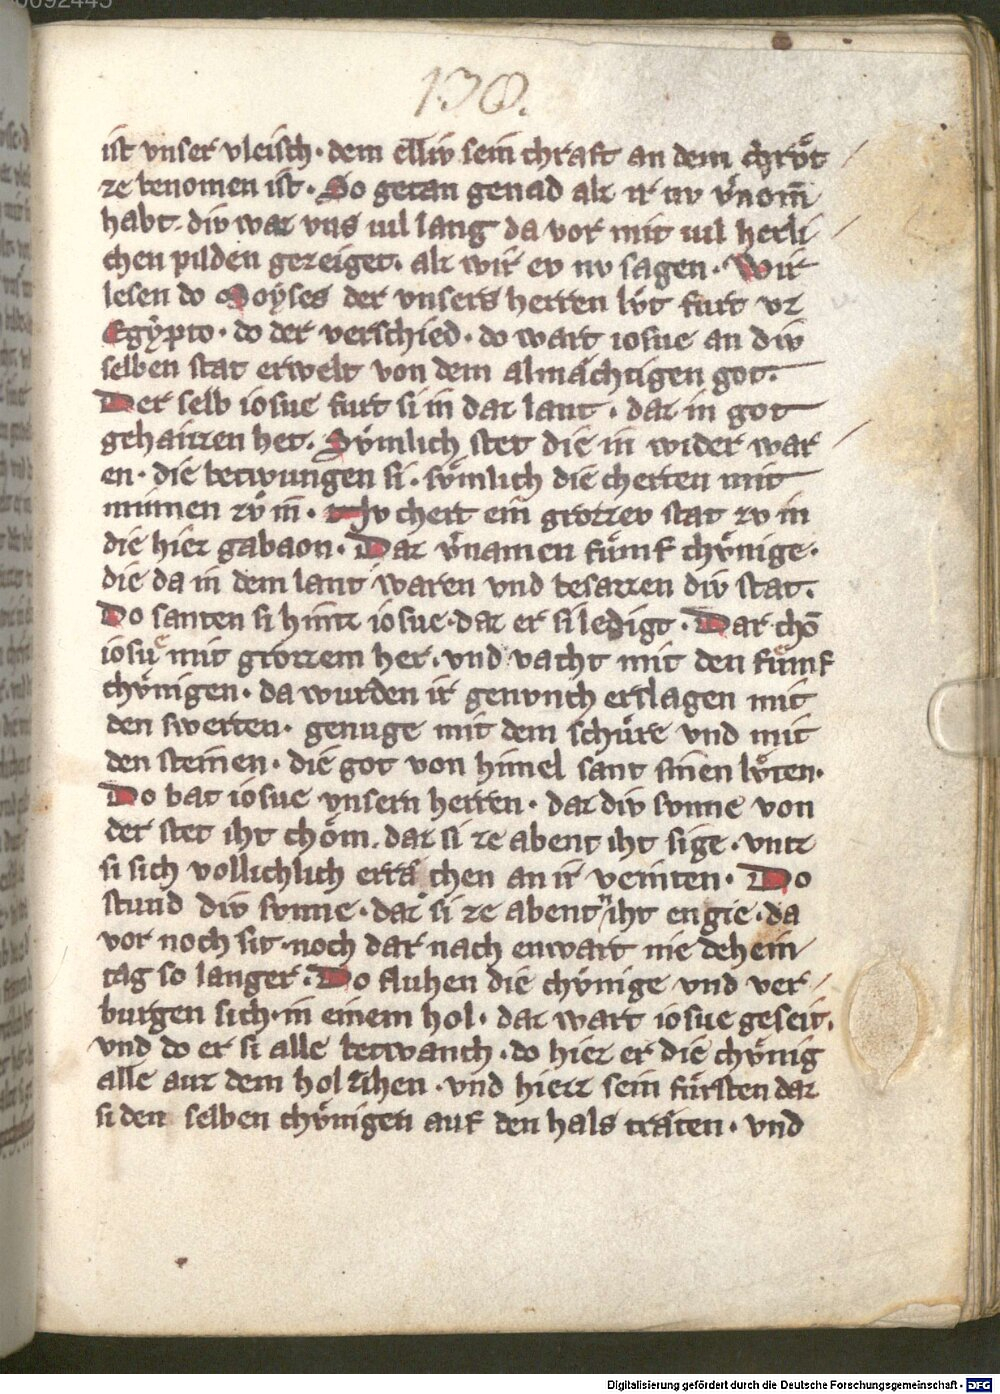 130.
ist vnser vleisch · dem elliv sein chraft an dem chrvͤt
ze benomen ist · So getan genad alz ir nv v̓nom̄
habt · div waz vns uil lang da vor mit uil herli
chen pilden gezeiget · alz wir ev nv sagen · Wir
lesen do Moyses der vnsers herren lvt furt vz
Egẏpto · do der verschied · do wart iosue an div
selben stat erwelt von dem almächtigen got ·
Der selb iosue furt si in daz lant · daz in got
gehaizzen het · Sv̈mlich stet die in wider war
en · die betwungen si · sv̈mlich die cherten mit
minnen zv̊ in̄ · chert ein grozzev stat zv in
die hiez gabaon · Daz v̓namen fümf chv̈nige ·
die da in dem lant waren vnd besazzen div stat ·
Do santen si hintz iosue · daz er si ledigt · Daz chō
iosue mit grozzem her · vnd vacht mit den fümf
chv̈nigen · da wurden ir genvnch erslagen mit
den swerten · genuge mit dem schüre vnd mit
den steinen · die got von himel sant sinen lv̈ten ·
Do bat iosue vnsern herren · daz div svnne von
der stet iht chöm · daz si ze abent iht sige · vntz
si sich vollichlich errä chen an ir veinten · Do
stund div svnne · daz si ze abent iht engie · da
vor noch sit · noch dar nach enwart nie dehein
tag so langer · Do fluhen die chv̈nige vnd ver
burgen sich · in einem hol · daz wart iosue geseit ·
vnd do er si alle betwanch · do hiez er die chv̈nig
alle auz dem hol zihen · vnd hiezz sein fürsten daz
si den selben chv̈nigen auf den hals träten · vnd
Digitalisierung gefördert durch die Deutsche Forschungsgemeinschaft · DFG